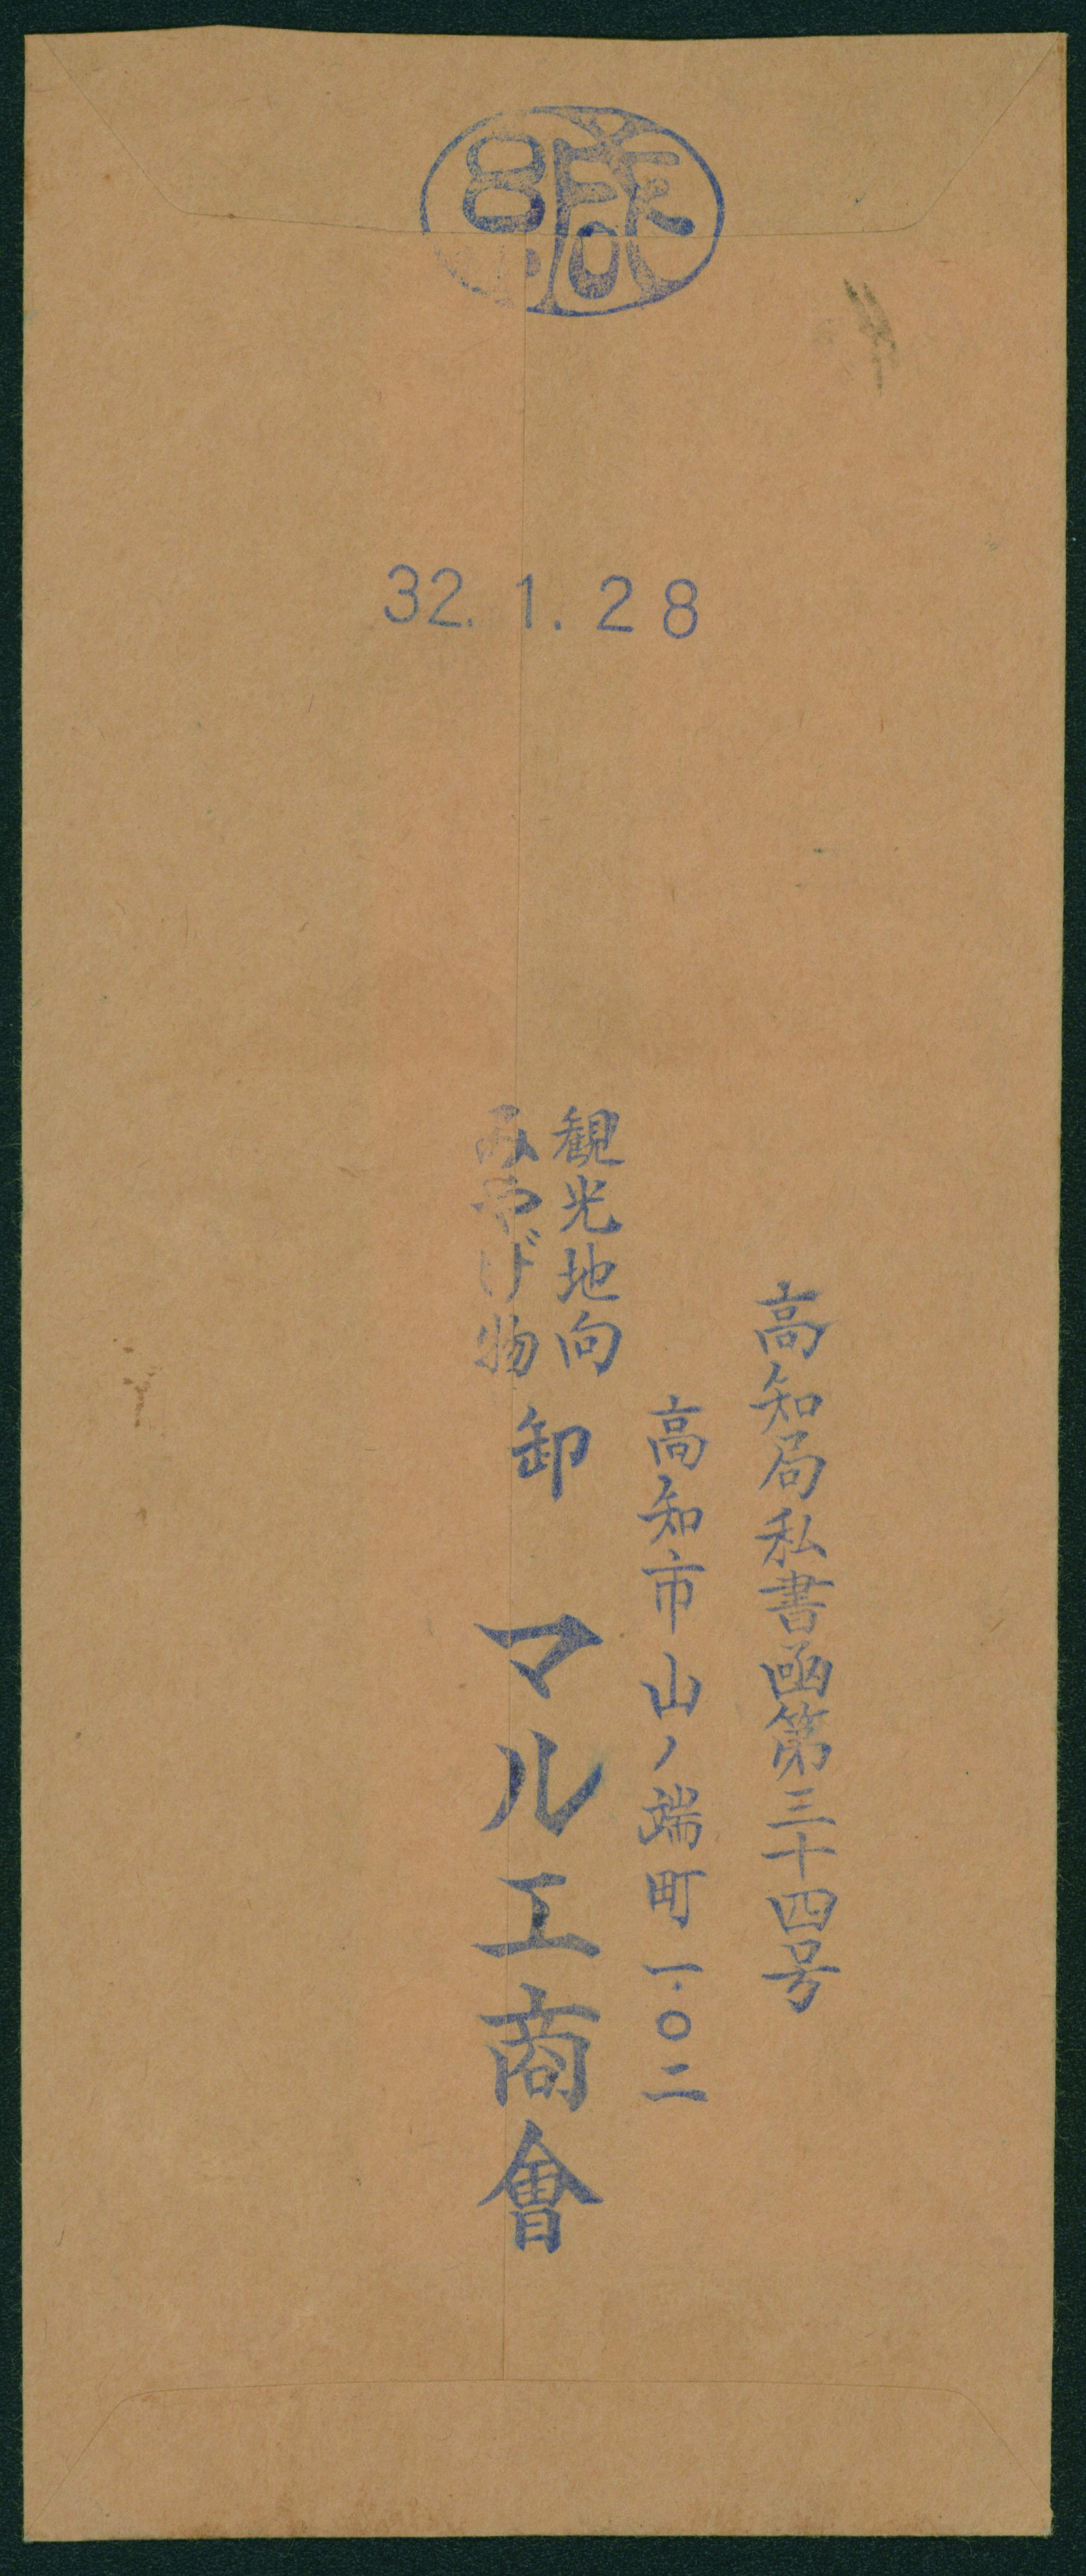 32. 1. 28
高知局私書函第三十四号
高知市山ノ端町一〇二
観光地向
みやげ物
卸
マルエ商會